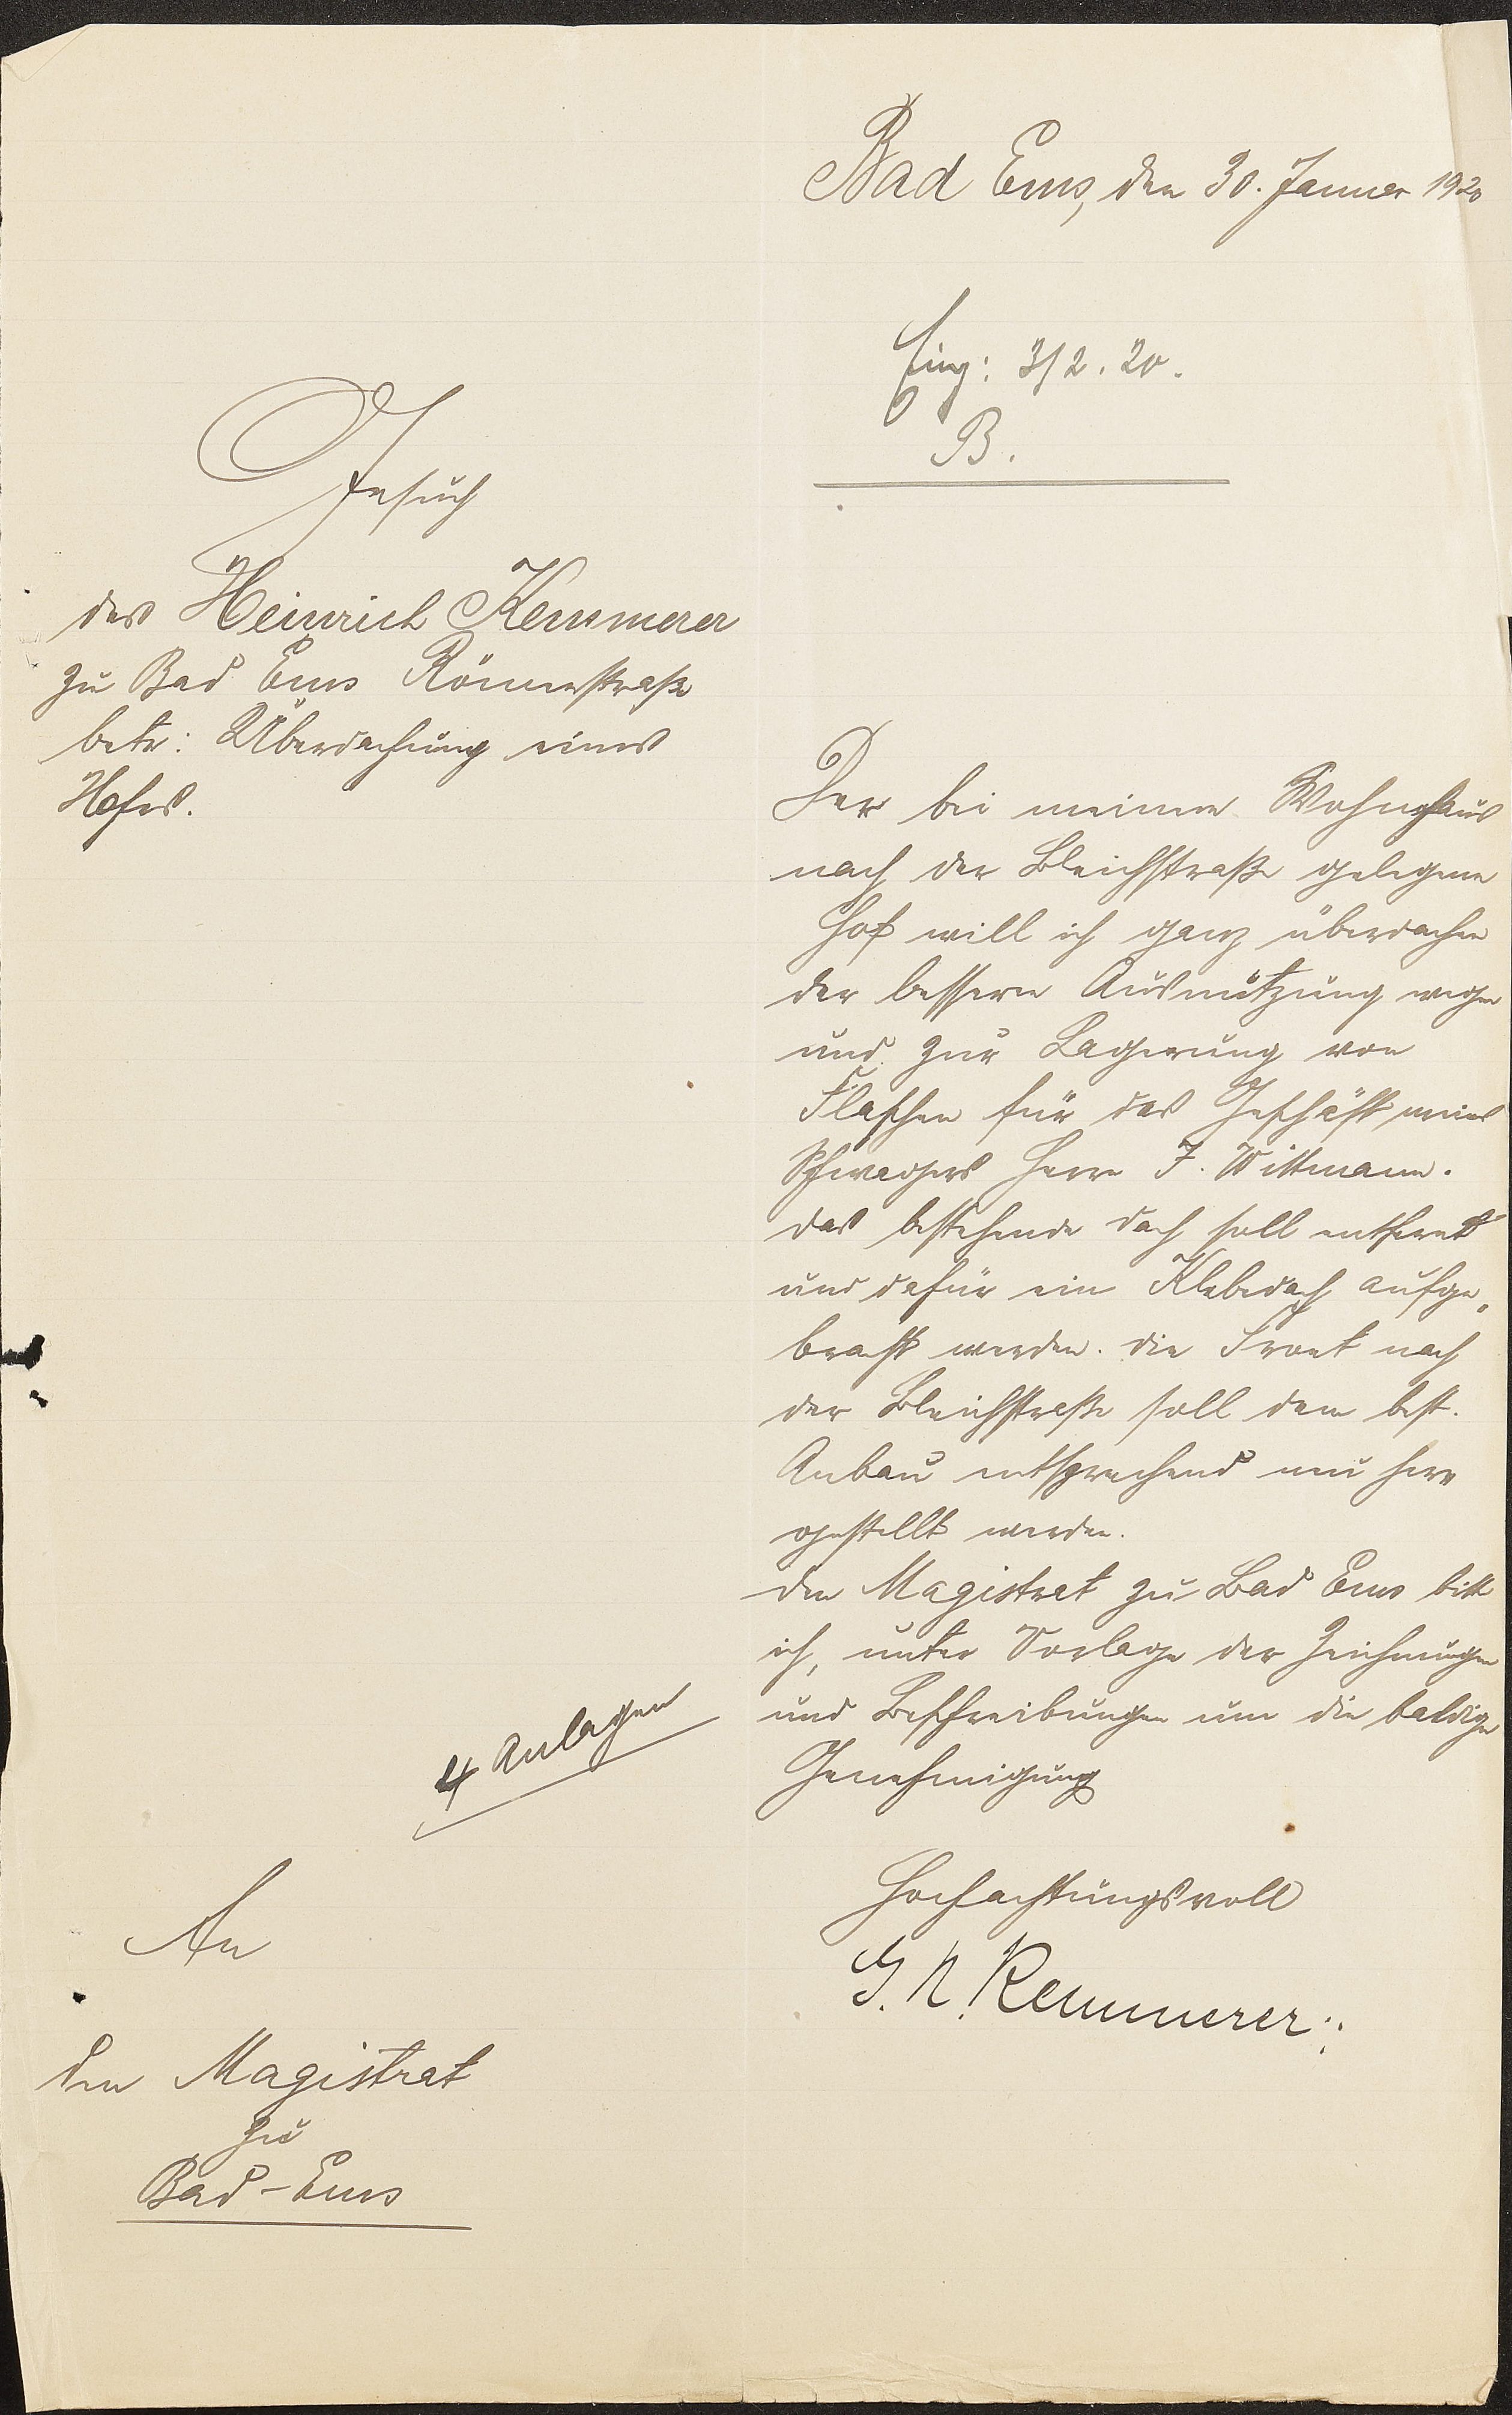 Bad Ems, den 30. Januar 1920
Eing: 3/2. 20.
B.
Gesuch
des Heinrich Kemmerer
zu Bad Ems Römerstraße
betr: Überdachung eines
Hofes.
Der bei meinem Wohnhaus
nach der Bleichstraße gelegene
Hof will ich ganz überdachen
der bessern Ausnützung wegen
und zur Lagerung von
Flaschen für das Geschäft meines
Schwagers Herrn J. Wittmann.
das bestehende Dach soll entfernt
und dafür ein Klebedach aufge„
bracht werden. Die Front nach
der Bleichstraße soll dem best.
Anbau entsprechend neu her„
gestellt werden.
Den Magistrat zu Bad Ems bitte
ich, unter Vorlage der Zeichnungen
und Beschreibungen um die baldige
Genehmigung
4 Anlagen
Hochachtungsvoll
Kemmerer
An
den Magistrat
zu
Bad-Ems